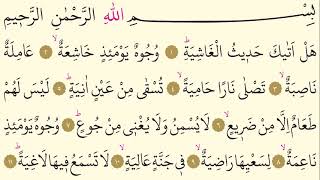 بِسْمِ اللّٰهِ الرَّحْمٰنِ الرَّحٖيمِ
هَلْ اَتٰيكَ حَدٖيثُ الْغَاشِيَةِؕ ﴿١﴾ وُجُوهٌ يَوْمَئِذٍ خَاشِعَةٌۙ ﴿٢﴾ عَامِلَةٌ
نَاصِبَةٌۙ ﴿٣﴾ تَصْلٰى نَارًا حَامِيَةًۙ ﴿٤﴾ تُسْقٰى مِنْ عَيْنٍ اٰنِيَةٍؕ ﴿٥﴾ لَيْسَ لَهُمْ
طَعَامٌ اِلَّا مِنْ ضَرٖيعٍۙ ﴿٦﴾ لَا يُسْمِنُ وَلَا يُغْنٖى مِنْ جُوعٍؕ ﴿٧﴾ وُجُوهٌ يَوْمَئِذٍ
نَاعِمَةٌۙ ﴿٨﴾ لِسَعْيِهَا رَاضِيَةٌۙ ﴿٩﴾ فٖى جَنَّةٍ عَالِيَةٍۙ ﴿١٠﴾ لَا تَسْمَعُ فٖيهَا لَاغِيَةًؕ ﴿١١﴾